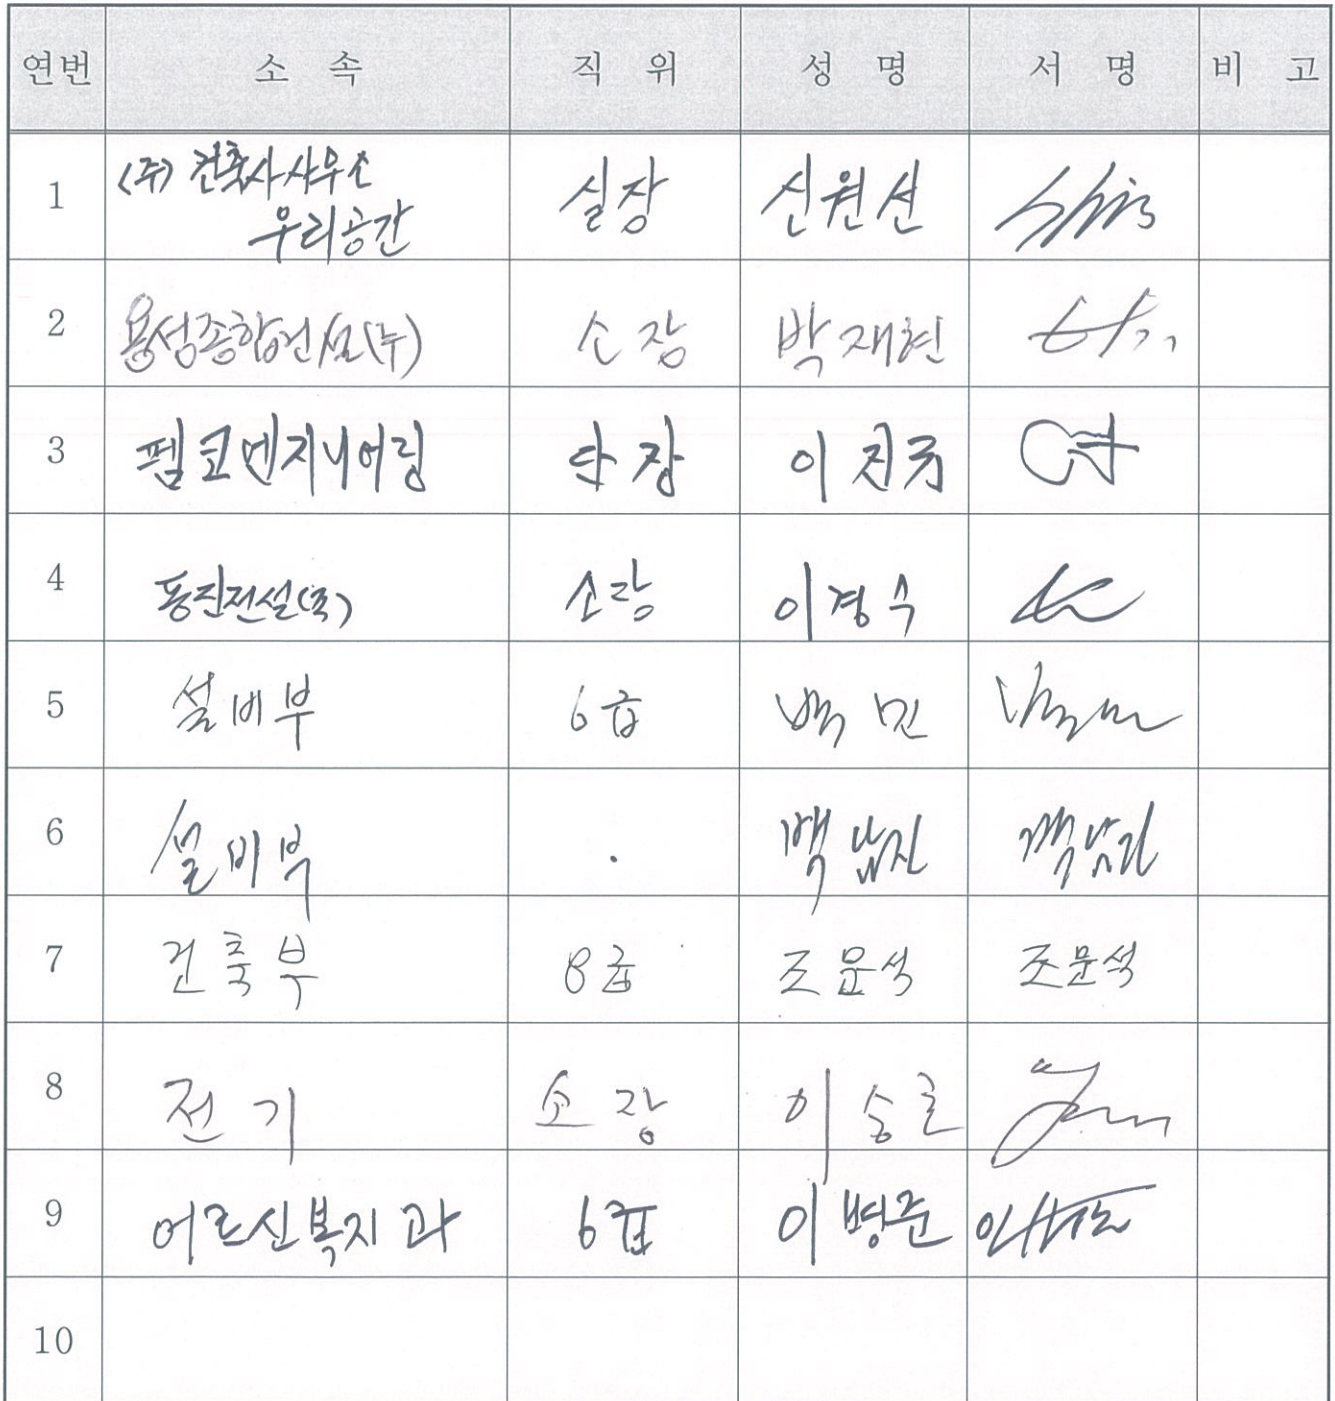 연번 소 속 직 위 성 명 서 명 비 고
1 (주) 건축사사무소 실장 신원선
우리공간
2 용성종합건설(주) 소장 박재현
3 펨코엔지니어링 단장
4 동진전설(주) 소장 이경수
5 설비부 6급 백민
6 설비부 . 백남진
7 건축부 8급 조문석 조문석
8 전기 소장
9 어르신복지과 6급 이병준
10